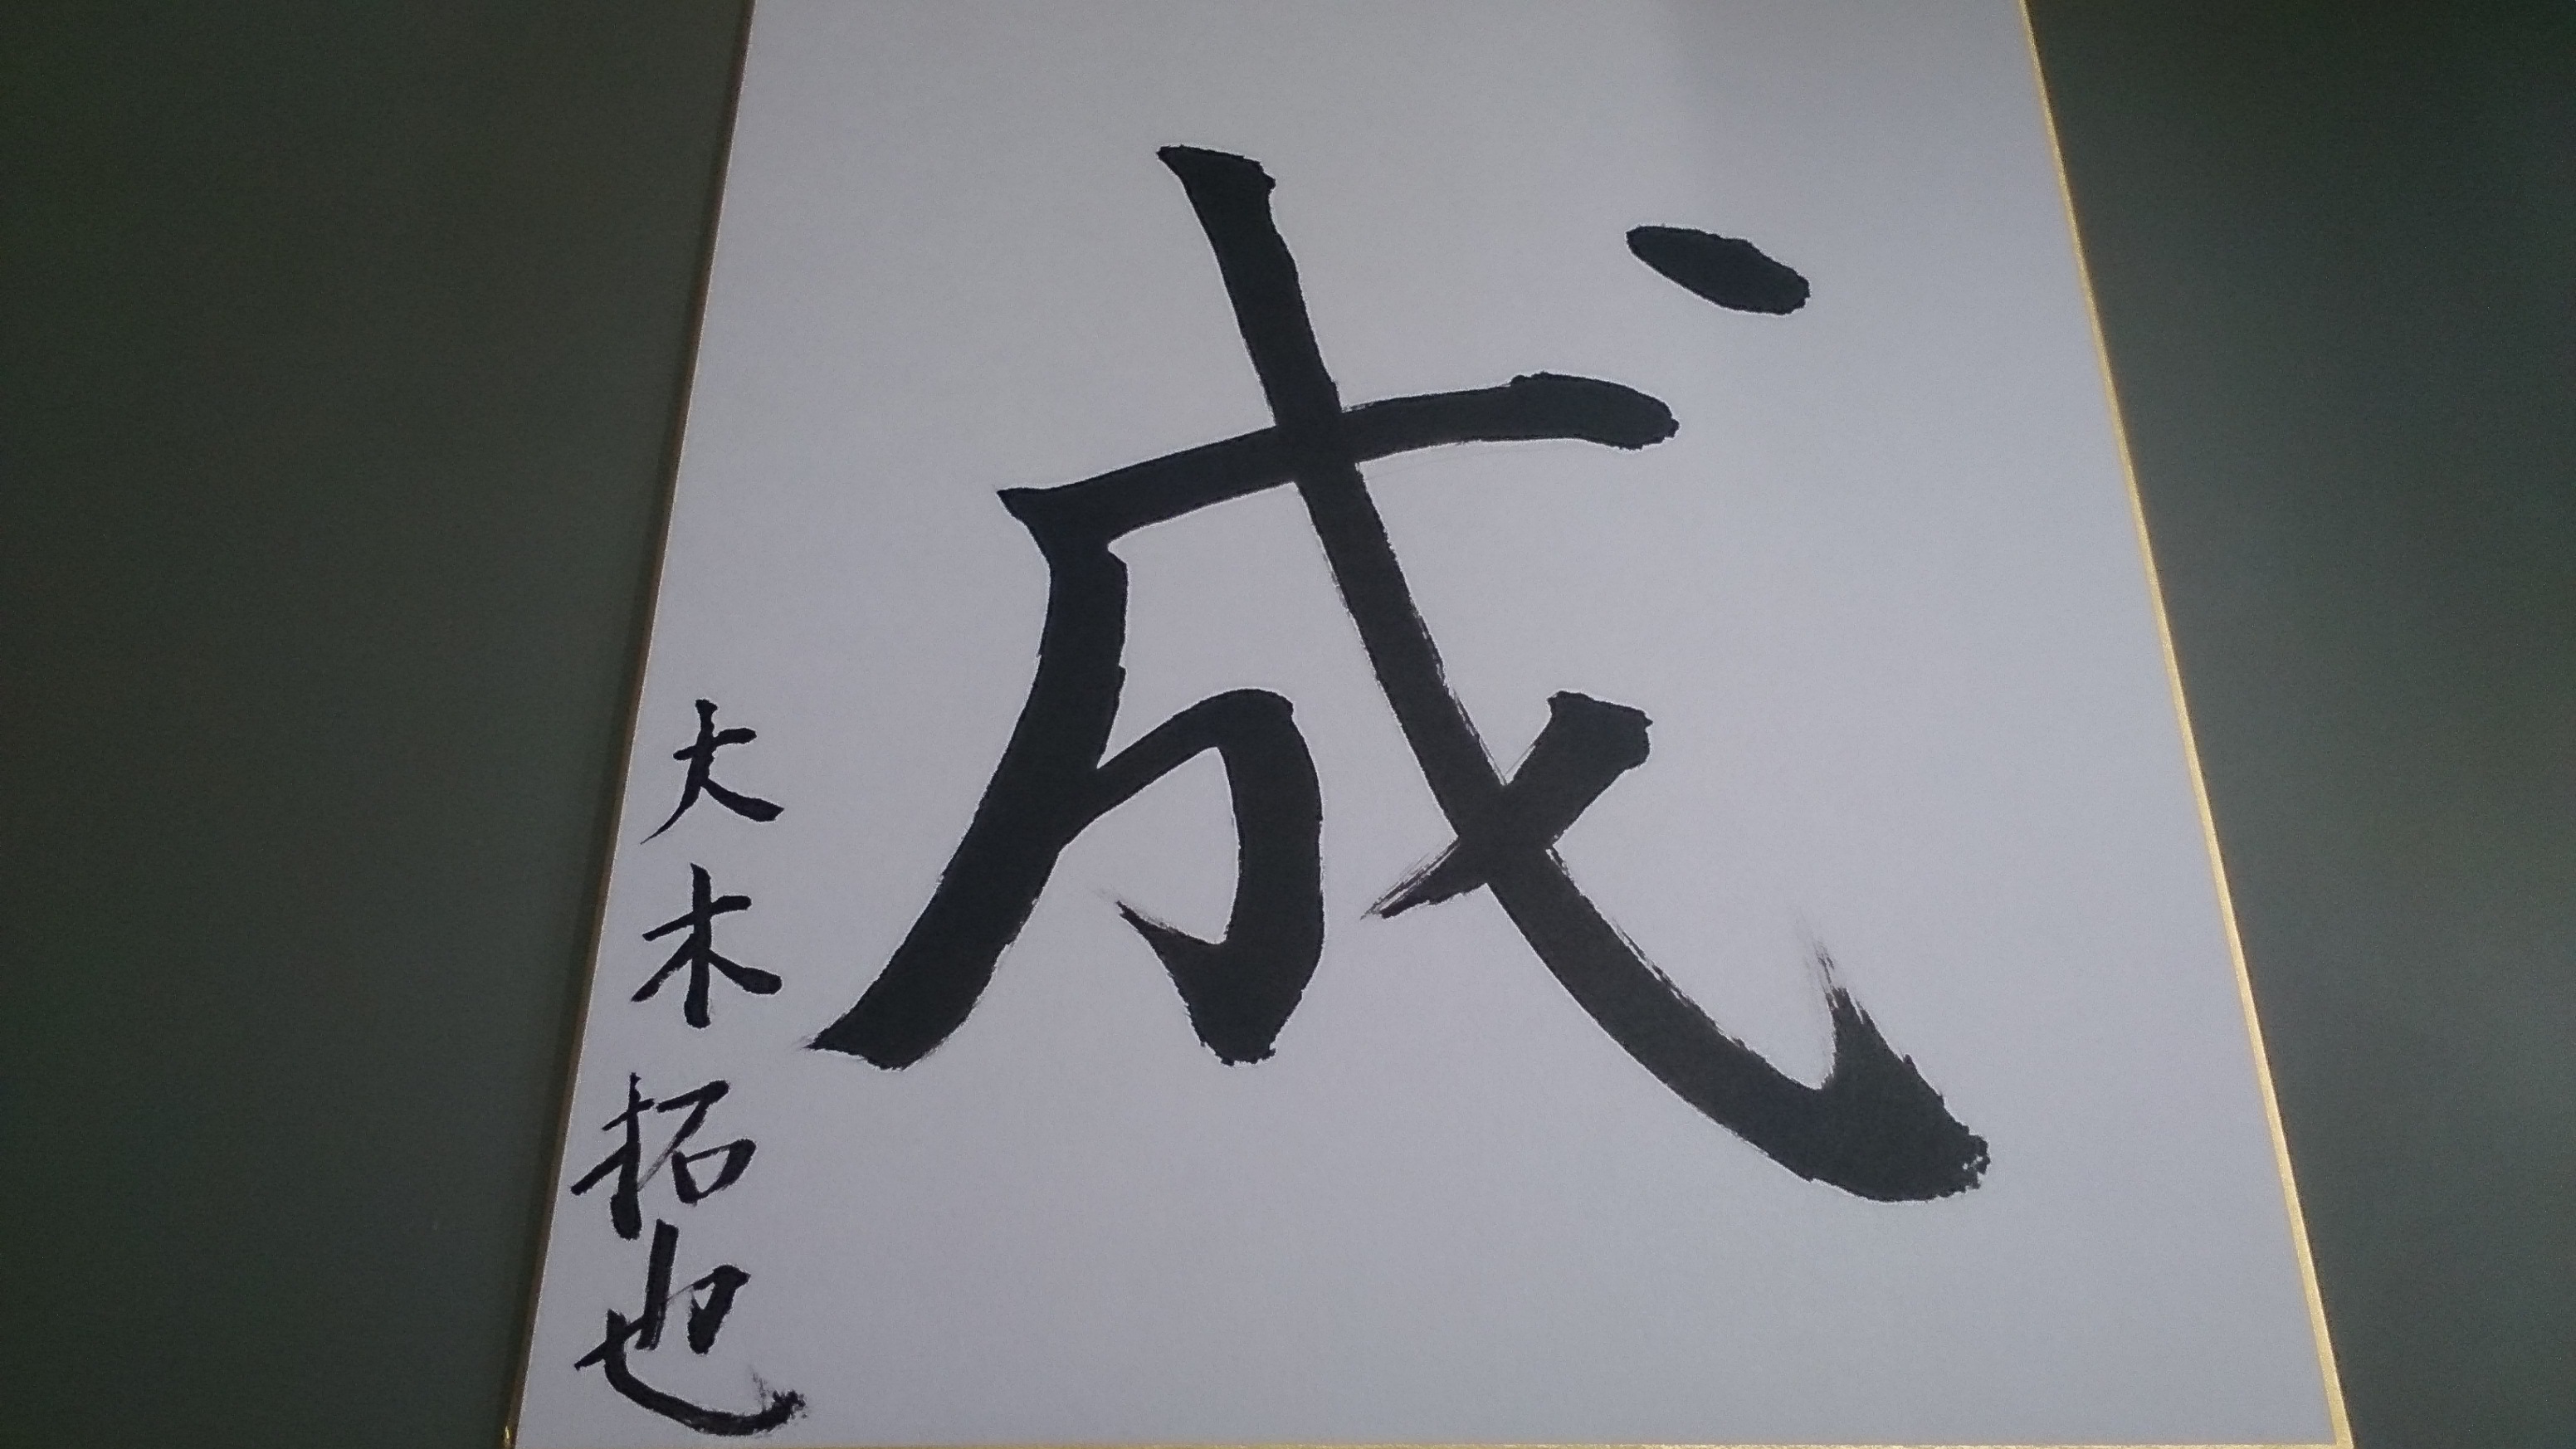 成
大木拓也